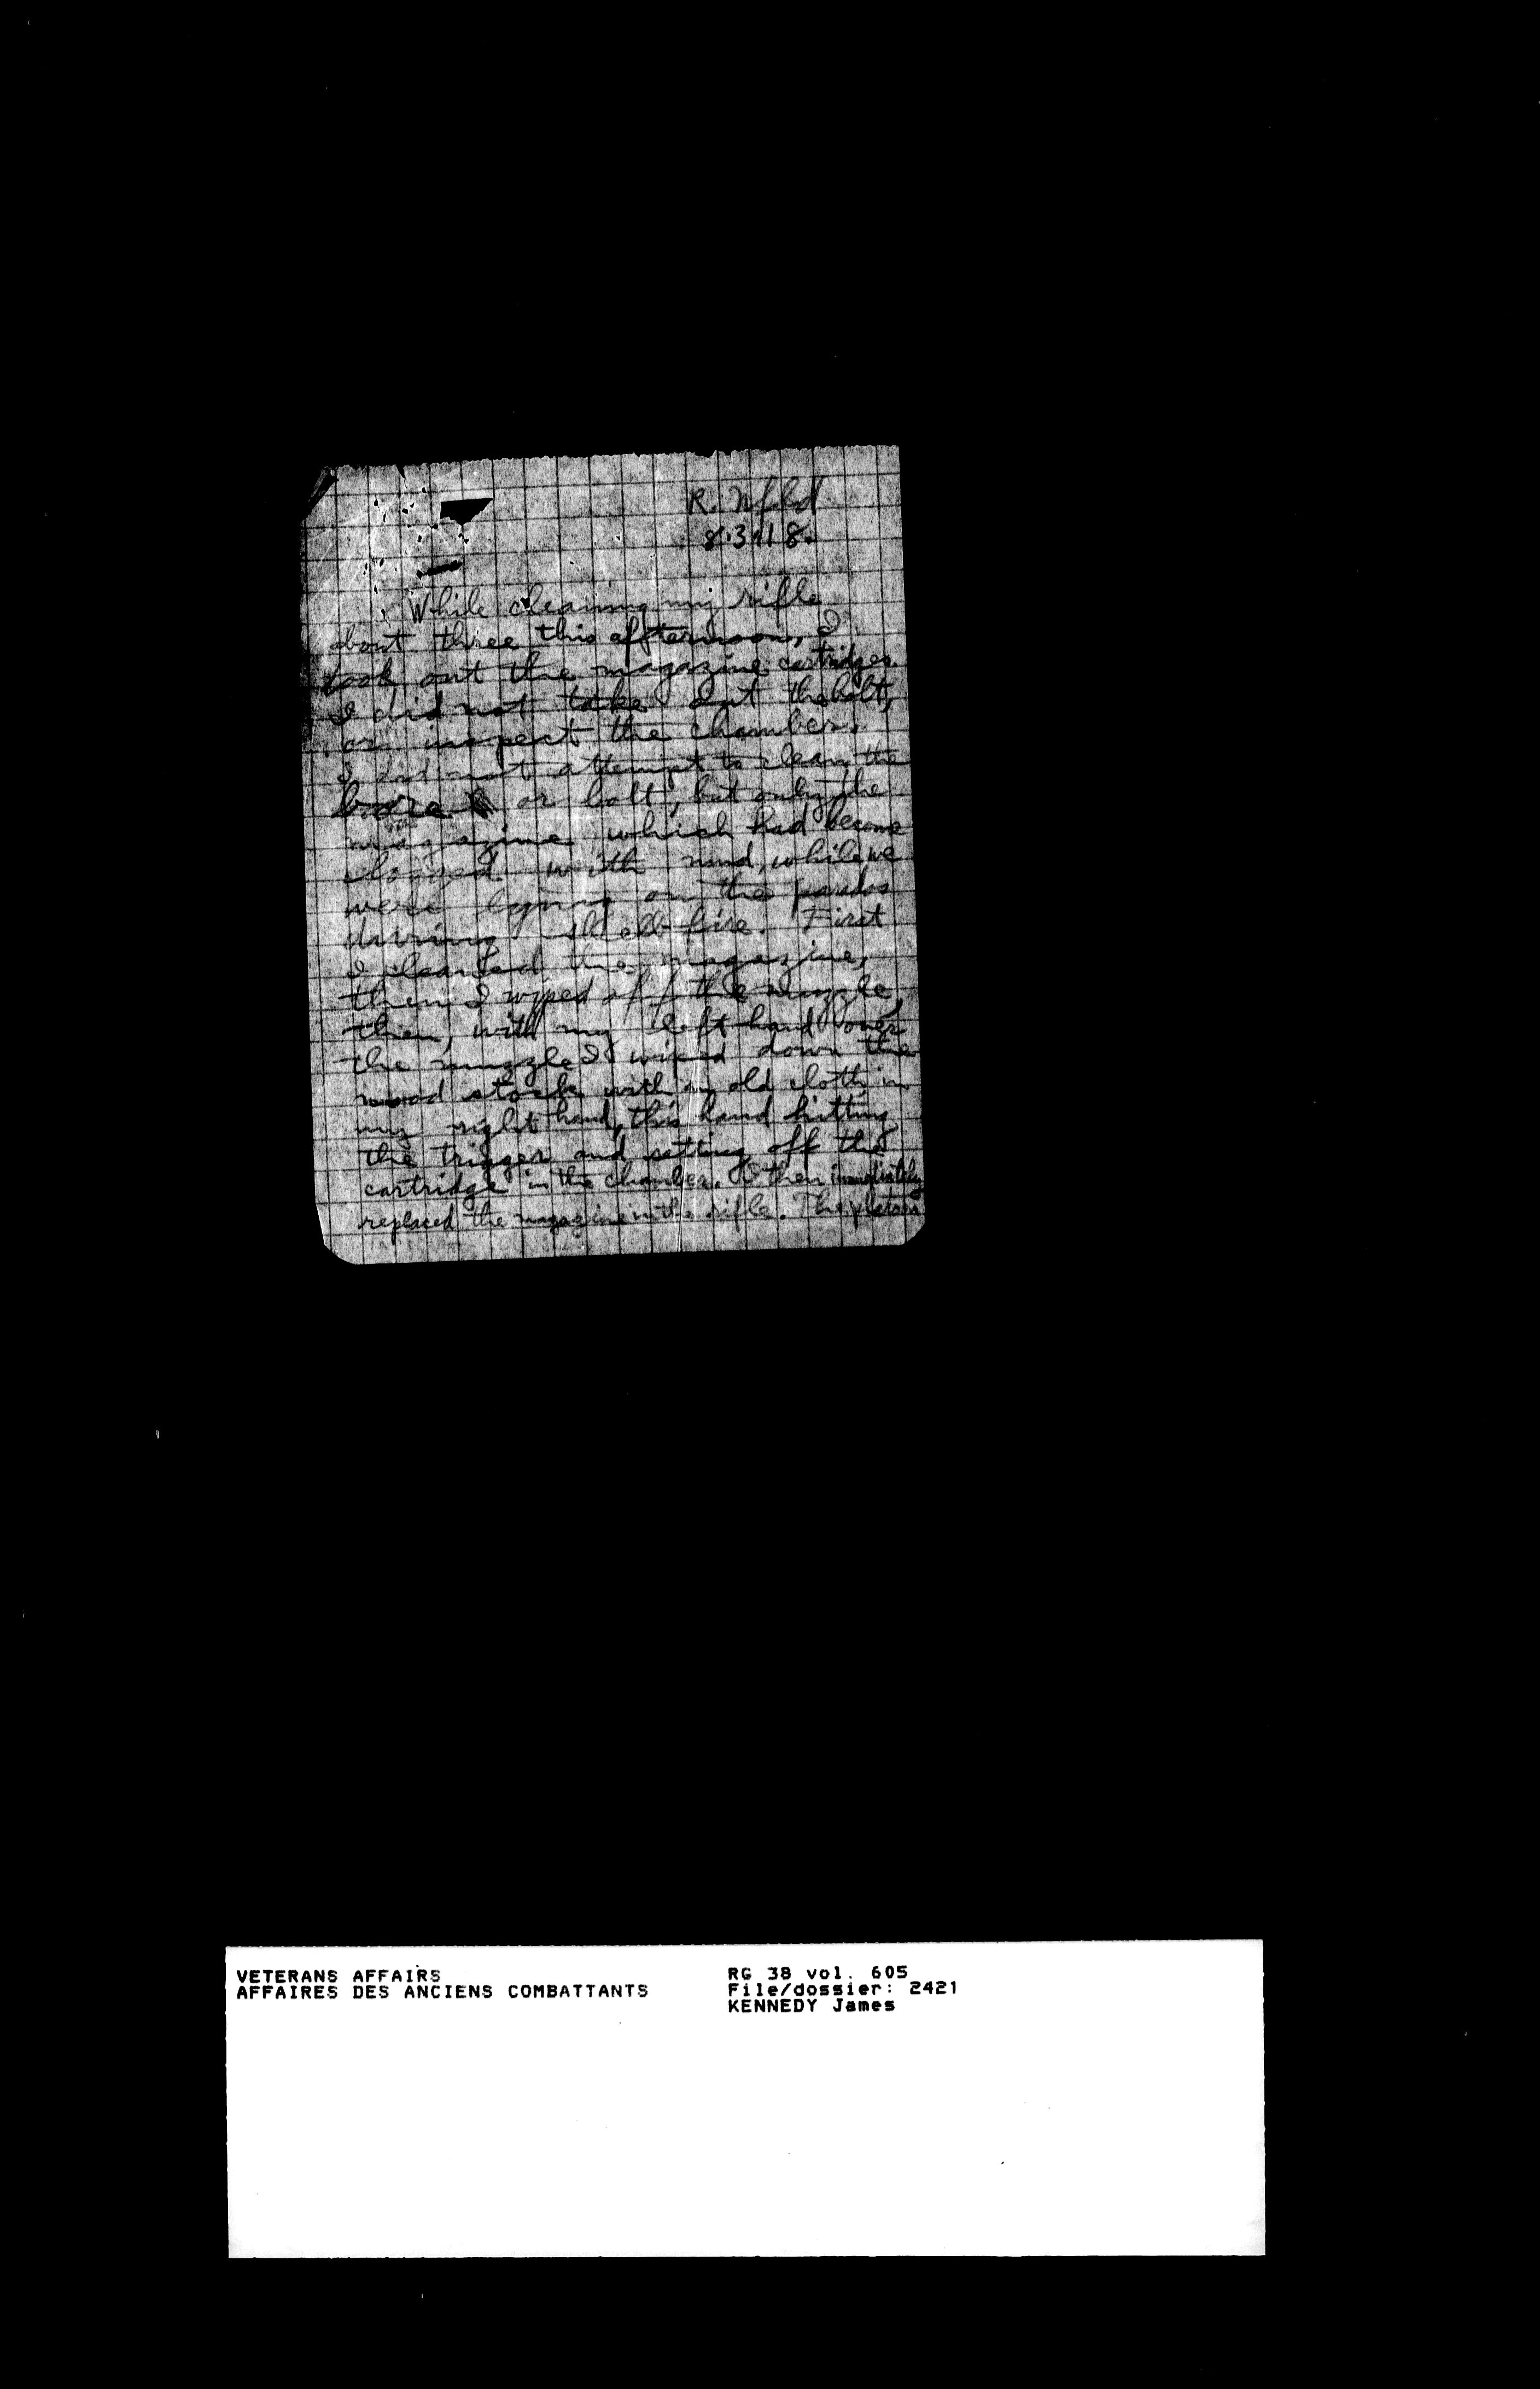 R. Nfld
8.3.18.
While cleaning my rifle
about three this afternoon, I
took out the magazine cartridges.
I did not take out the bolt,
or inspect the chamber.
I did not attempt to clean the
bore or bolt, but only the
magazine which had become
clogged with mud, while we
were lying on the parados
during shell fire. First
I cleaned the magazine,
then I wiped off the muzzle,
then, with my left hand over
the muzzle I wiped down the
wood stock with an old cloth in
my right hand, this hand hitting
the trigger and setting off the
cartridge in the chamber. I then immediately
replaced the magazine in the rifle. The platoon
VETERANS AFFAIRS
AFFAIRES DES ANCIENS COMBATTANTS
RG 38 vol. 605
File/dossier: 2421
KENNEDY James